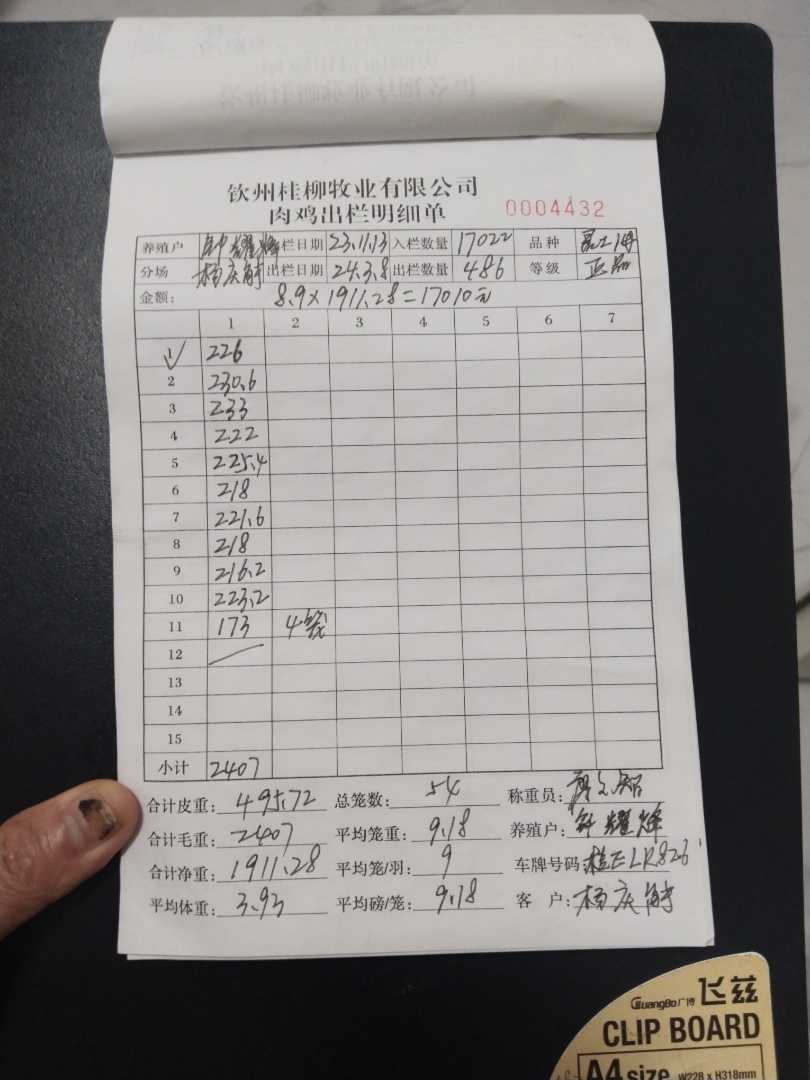 钦州桂柳牧业有限公司
肉鸡出栏明细单 0004432
养殖户 钟耀烽 栏日期 23.11.13 入栏数量 17022 品种
分场 杨庆 出栏日期 24.3.8 出栏数量 486 等级 正品
金额: 8.9×1911.28=17010元
1 2 3 4 5 6 7
1 226
2 230.6
3 233
4 222
5 225.4
6 218
7 221.6
8 218
9 216.2
10 223.2
11 173 4笼
12
13
14
15
小计 2407
合计皮重: 495.72 总笼数: 54 称重员:
合计毛重: 2407 平均笼重: 9.18 养殖户: 钟耀烽
合计净重: 1911.28 平均笼/羽: 9 车牌号码: 桂ELR826
平均体重: 3.93 平均磅/笼: 9.18 客 户: 杨庆
GuangBo广博 飞兹
CLIP BOARD
A4 size W228 x H318mm